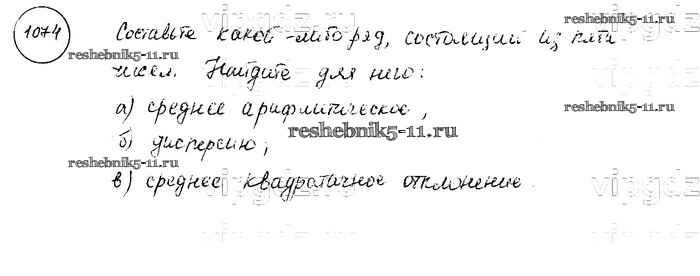 1074
Составьте какой-либо ряд, состоящий из пяти
чисел. Найдите для него:
reshebnik5-11.ru
а) среднее арифметическое,
reshebnik5-11.ru
б) дисперсию;
reshebnik5-11.ru
в) среднее квадратичное отклонение.
vipgdz
vipgdz
vipgdz